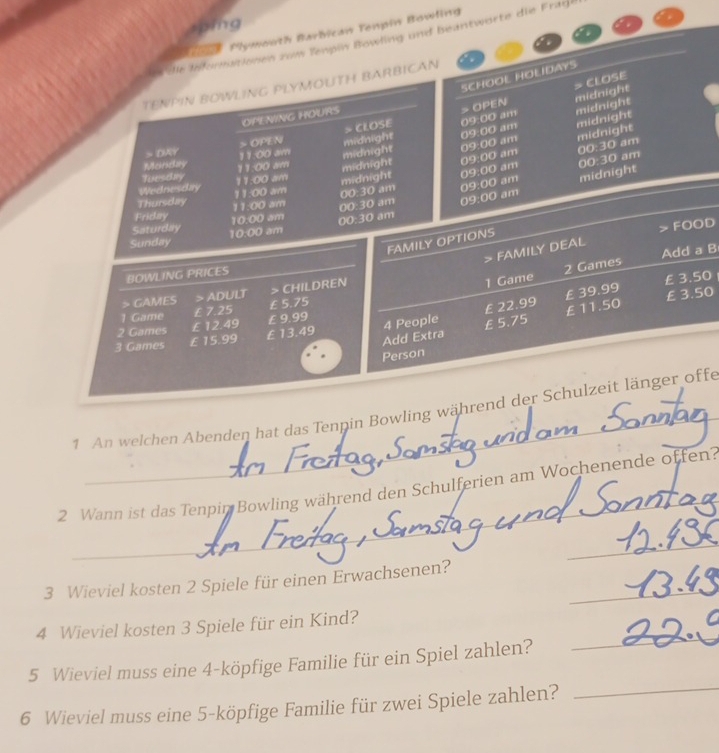 Plymouth Barbican Tenpin Bowling
die Informationen zum Tenpin Bowling und beantworte die Fragen
TENPIN BOWLING PLYMOUTH BARBICAN
OPENING HOURS
> DAY > OPEN > CLOSE
Monday 11:00 am midnight
Tuesday 11:00 am midnight
Wednesday 11:00 am midnight
Thursday 11:00 am midnight
Friday 11:00 am 00:30 am
Saturday 10:00 am 00:30 am
Sunday 10:00 am 00:30 am
SCHOOL HOLIDAYS
> OPEN > CLOSE
09:00 am midnight
09:00 am midnight
09:00 am midnight
09:00 am midnight
09:00 am 00:30 am
09:00 am 00:30 am
09:00 am midnight
BOWLING PRICES
> GAMES > ADULT > CHILDREN
1 Game £ 7.25 £ 5.75
2 Games £ 12.49 £ 9.99
3 Games £ 15.99 £ 13.49
FAMILY OPTIONS
> FAMILY DEAL > FOOD
1 Game 2 Games Add a B
4 People £ 22.99 £ 39.99 £ 3.50
Add Extra £ 5.75 £ 11.50 £ 3.50
Person
1 An welchen Abenden hat das Tenpin Bowling während der Schulzeit länger offe
Am Freitag, Samstag und am Sonntag
2 Wann ist das Tenpin Bowling während den Schulferien am Wochenende offen?
Am Freitag, Samstag und Sonntag
3 Wieviel kosten 2 Spiele für einen Erwachsenen? 12.49€
4 Wieviel kosten 3 Spiele für ein Kind? 13.49
5 Wieviel muss eine 4-köpfige Familie für ein Spiel zahlen? 22.9
6 Wieviel muss eine 5-köpfige Familie für zwei Spiele zahlen?